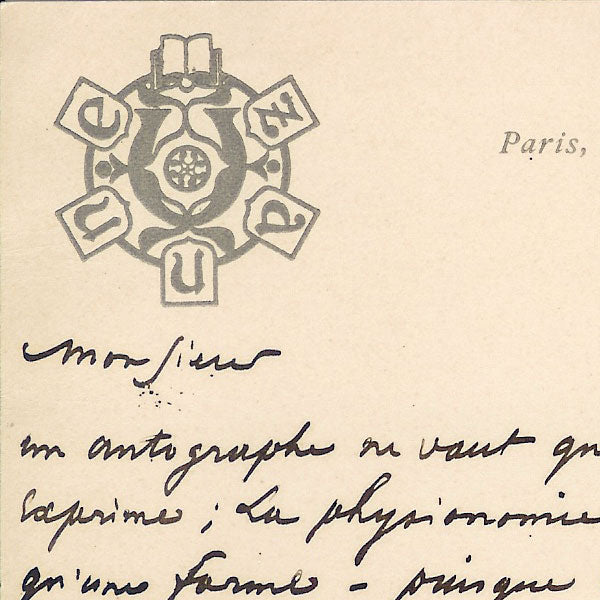 Uzanne
Paris,
Monsieur
un autographe ne vaut qu
exprime ; La physionomie
qu'une forme - puisque